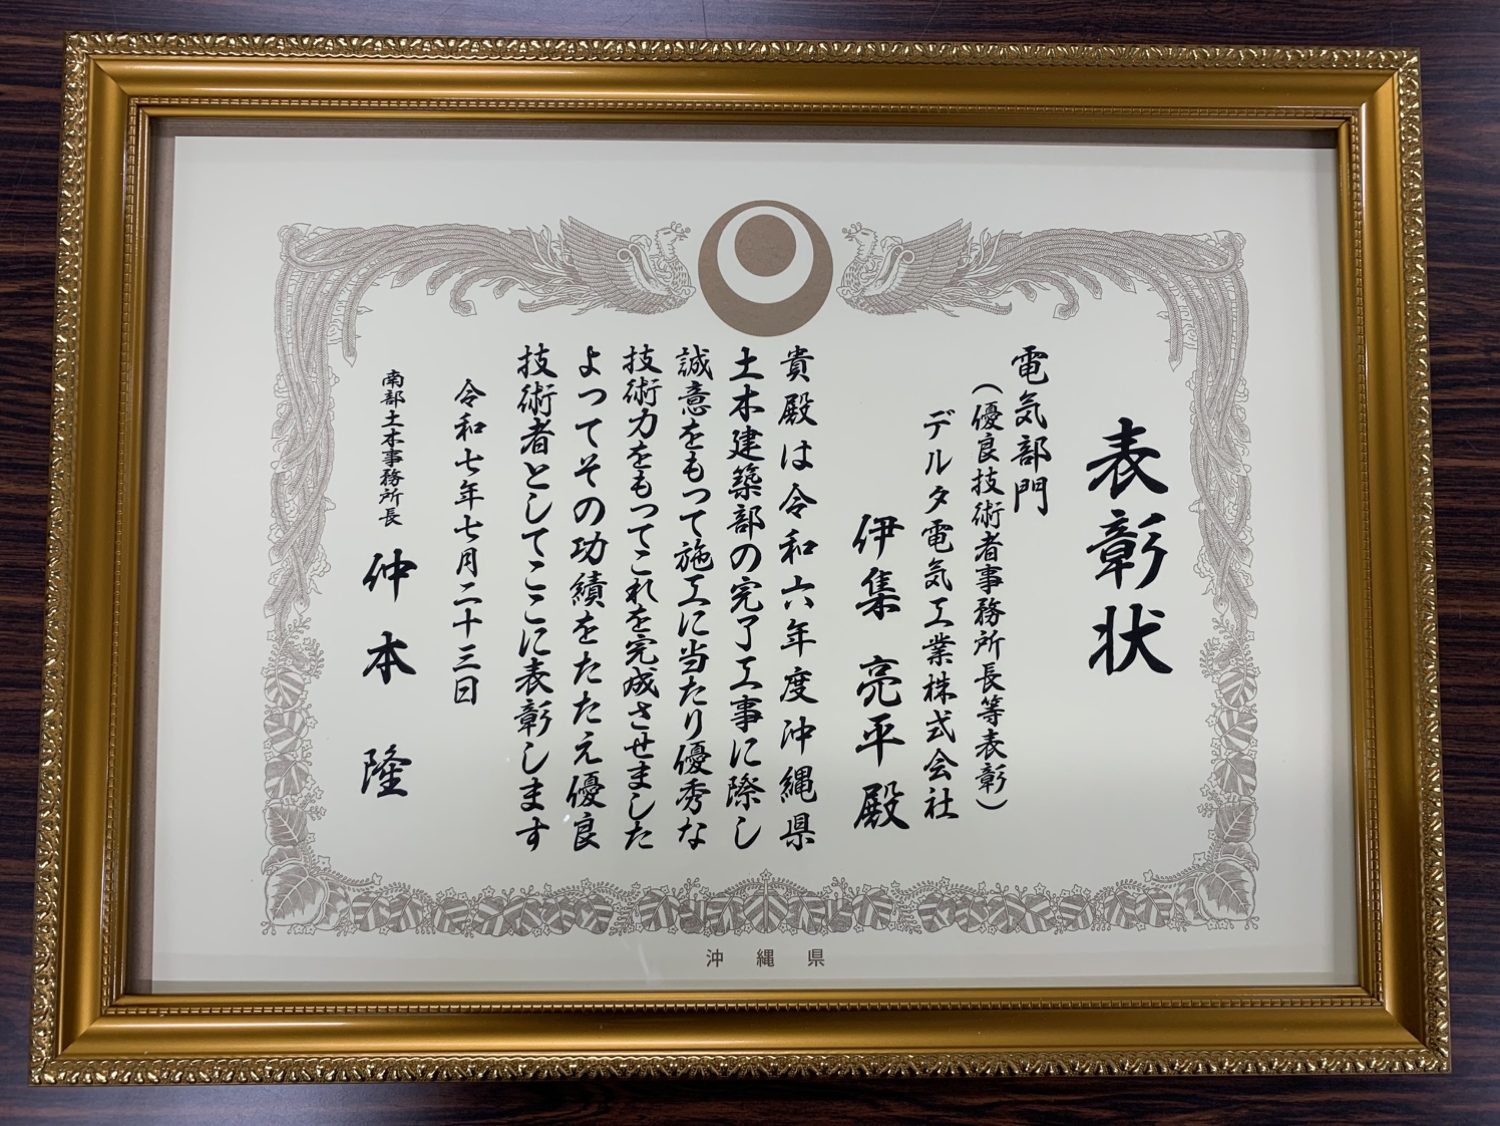 表彰状
電気部門
（優良技術者事務所長等表彰）
デルタ電気工業株式会社
伊集 亮平 殿
貴殿は令和六年度沖縄県
土木建築部の完了工事に際し
誠意をもって施工に当たり優秀な
技術力をもってこれを完成させました
よってその功績をたたえ優良
技術者としてここに表彰します
令和七年七月二十三日
南部土木事務所長 仲本 隆
沖縄県